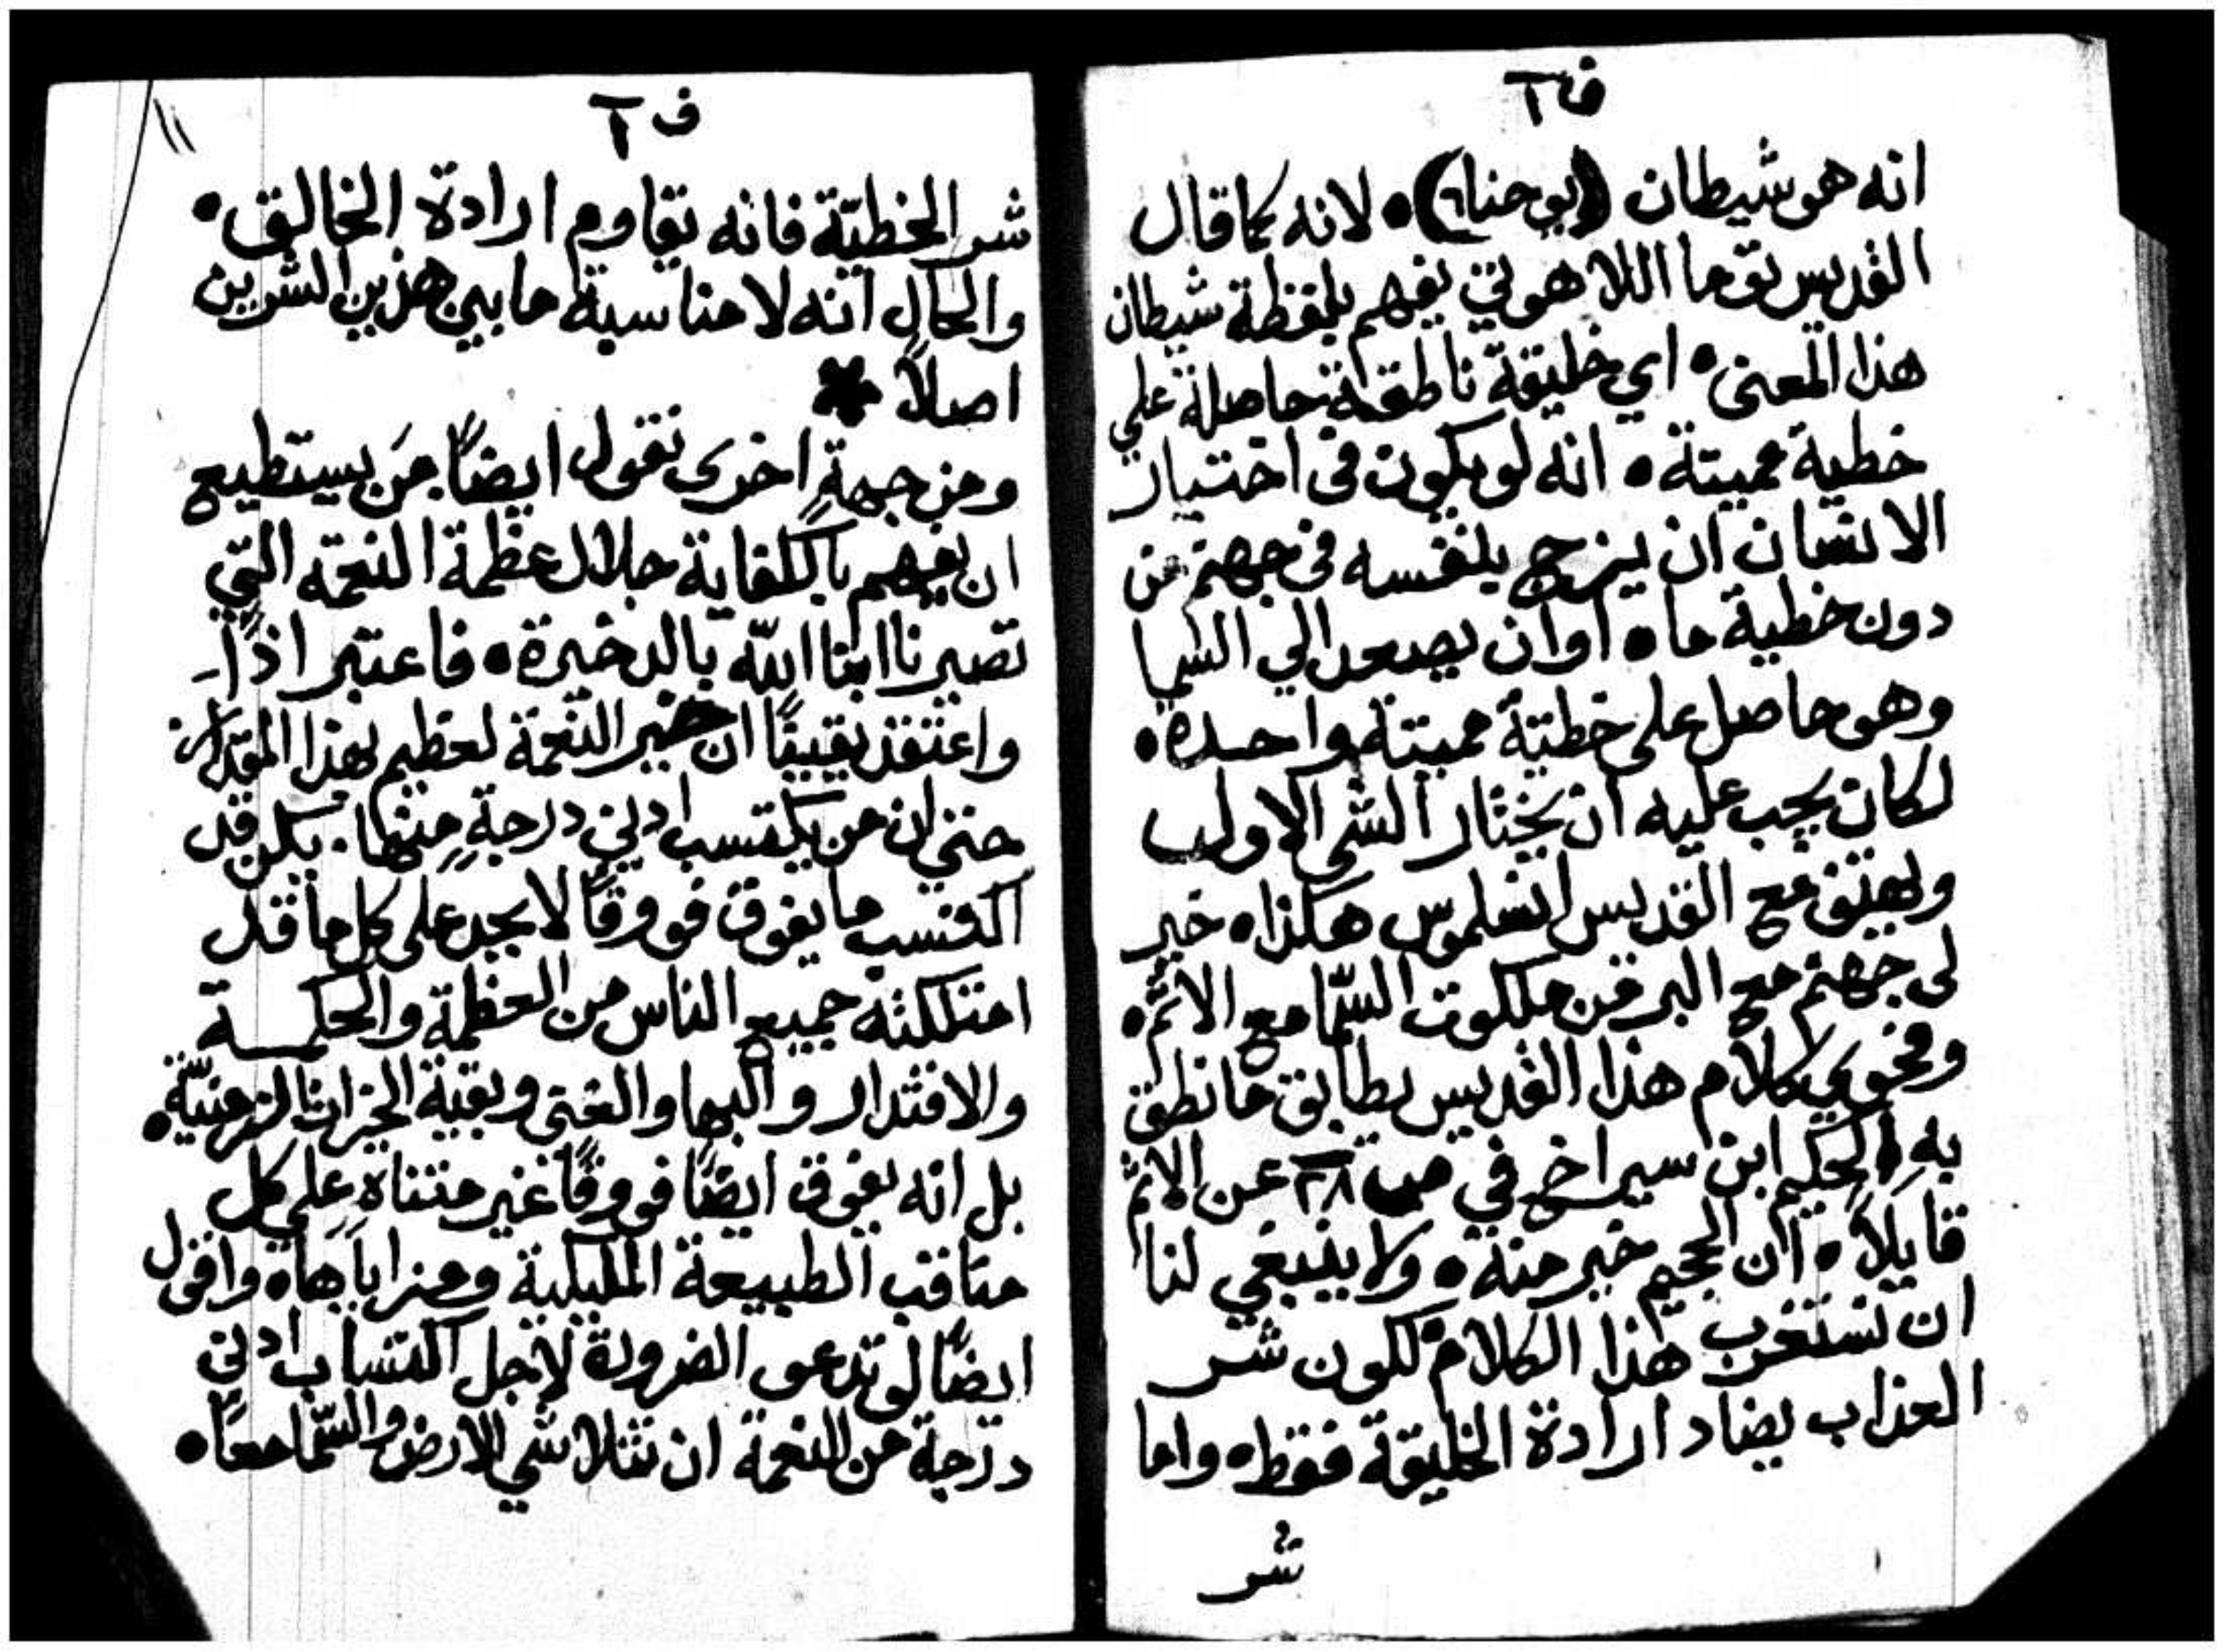 ف ٦
انه هو شيطان (يوحنا ٦) ۰ لانه كما قال
القديس توما اللاهوتي يفهم بلفظة شيطان
هذا المعنى ۰ اي خليقة ناطقة حاصلة علي
خطية مميتة ۰ انه لو يكون في اختيار
الانسان ان يزج بنفسه في جهنم من
دون خطية ما ۰ او ان يصعد الي السما
وهو حاصل على خطيّة مميتة واحدة ۰
لكان يجب عليه ان يختار الشي الاول
ويهتف مع القديس انسلموس هكذا ۰ خير
لي جهنم مع البر من ملكوت السّما مع الاثم ۰
وفحوي كلام هذا القديس يطابق ما نطق
بهِ الحكيم ابن سيراخ في ص ٢٨ عن الاثم
قايلاً ۰ ان الجحيم خير منه ۰ ولا ينبغي لنا
ان نستغرب هذا الكلام لكون شر
العذاب يضاد ارادة الخليقة فقط ۰ واما
شر
ف ٦
١١
شر الخطيّة فانه يقاوم ارادة الخالق ۰
والحال انه لا مناسبة ما بين هذين الشرين
اصلاً *
ومن جهةٍ اخرى نقول ايضًا مَن يستطيع
ان يفهم بالكفاية جلال عظمة النعمه التي
تصيرنا ابنا اللّه بالدخيرة ۰ فاعتبر اذًا
واعتقد يقينًا ان خير النعمة لعظيم بهذا المقدار
حتي ان من يكتسب ادني درجةٍ منها. يكن قد
اكتسب ما يفوق فووقًا لا يحد على كل ما قد
امتلكته جميع الناس من العظمة والحكمة
والاقتدار والبها والغنى وبقية الخيرات الزمنيّة ۰
بل انه يفوق ايضًا فووقًا غير متناهٍ علي كل
مناقب الطبيعة الملايكية ومزاياها ۰ واقول
ايضًا لو تدعى الضرورة لاجل اكتساب ادني
درجة من النعمة ان تتلاشي الارض والسّما معًا ۰